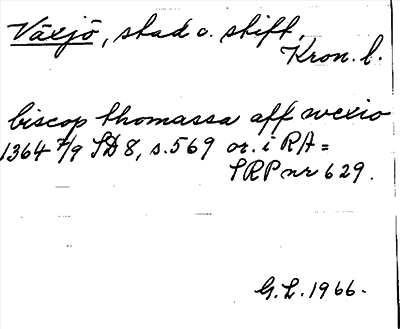 Växjö, stad o. stift,
Kron. l.
biscop thomassa aff wexio
1364 7/9 SD 8, s. 569 or. i RA =
SRP nr 629.
G. L. 1966.